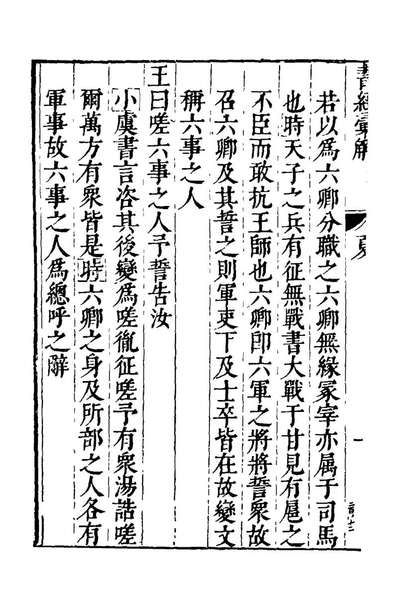 書經彙解
夏
一
若以爲六卿分職之六卿無緣冢宰亦属于司馬
也時天子之兵有征無戰書大戰于甘見有扈之
不臣而敢抗王師也六卿卽六軍之將將誓衆故
召六卿及其誓之則軍吏下及士卒皆在故變文
稱六事之人
王曰嗟六事之人予誓告汝
小虞書言咨其後變爲嗟胤征嗟予有衆湯誥嗟
爾萬方有衆皆是時六卿之身及所部之人各有
軍事故六事之人爲總呼之辭